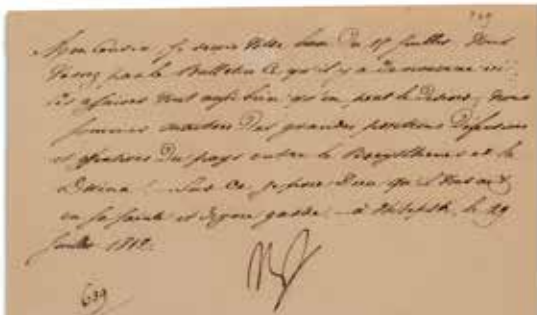 Mon Cousin, Je reçois Votre lettre du 17 Juillet. Vous
Verrez par le Bulletin Ce qu'il y a de nouveau ici.
Les affaires vont aussi bien qu'on peut le désirer, Nous
sommes maîtres Des grandes positions Défensives
et offensives Du pays entre le Borysthène et le
Dwina. Sur Ce, Je prie Dieu qu'il Vous ait
en sa sainte et digne garde. à Witepsk, le 29
Juillet 1812.
Np
639